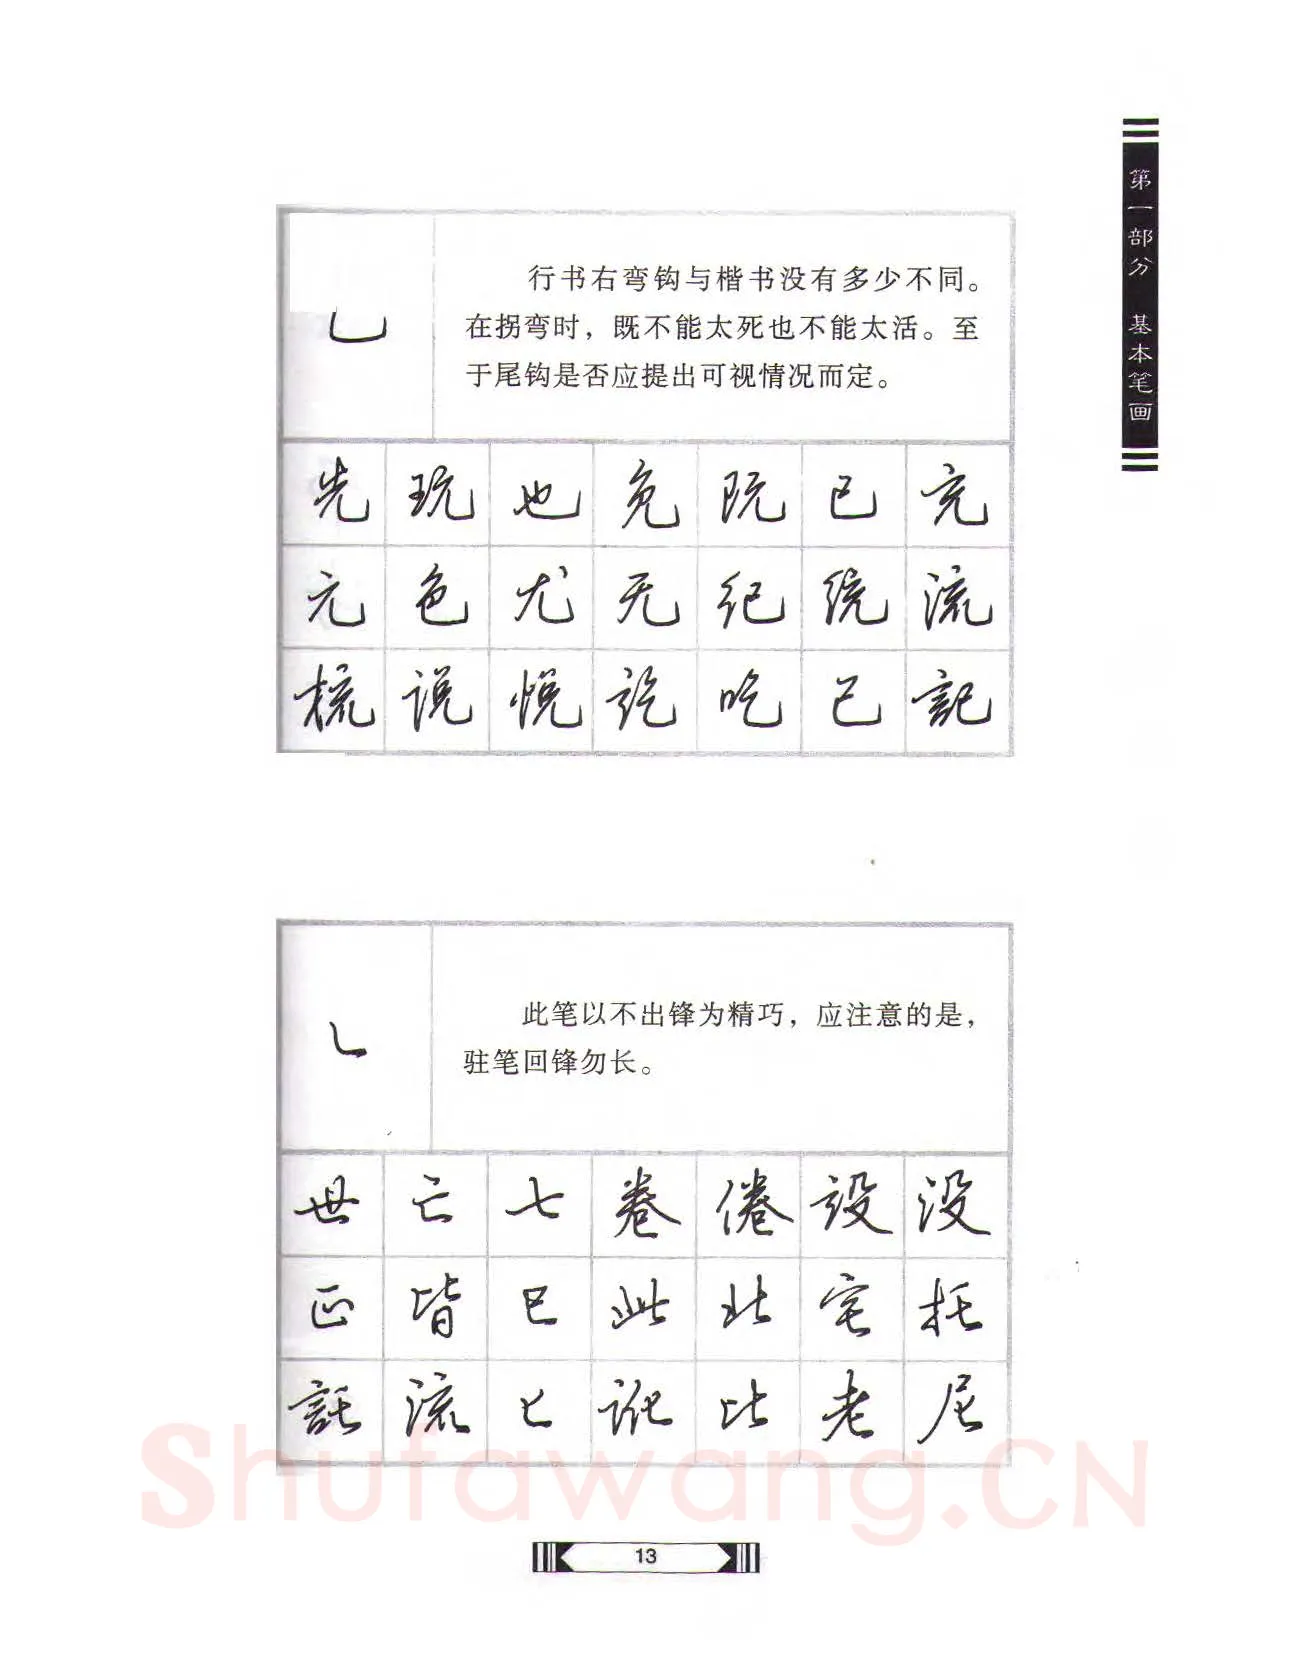 第一部分 基本笔画
乚
行书右弯钩与楷书没有多少不同。
在拐弯时，既不能太死也不能太活。至
于尾钩是否应提出可视情况而定。
先 玩 也 免 阮 已 充
元 色 尤 无 纪 统 流
梳 说 悦 讫 吃 己 記
此笔以不出锋为精巧，应注意的是，
驻笔回锋勿长。
世 亡 七 卷 倦 設 没
正 皆 巳 此 北 宅 托
託 流 匕 訛 比 老 尼
Shufawang.CN
13